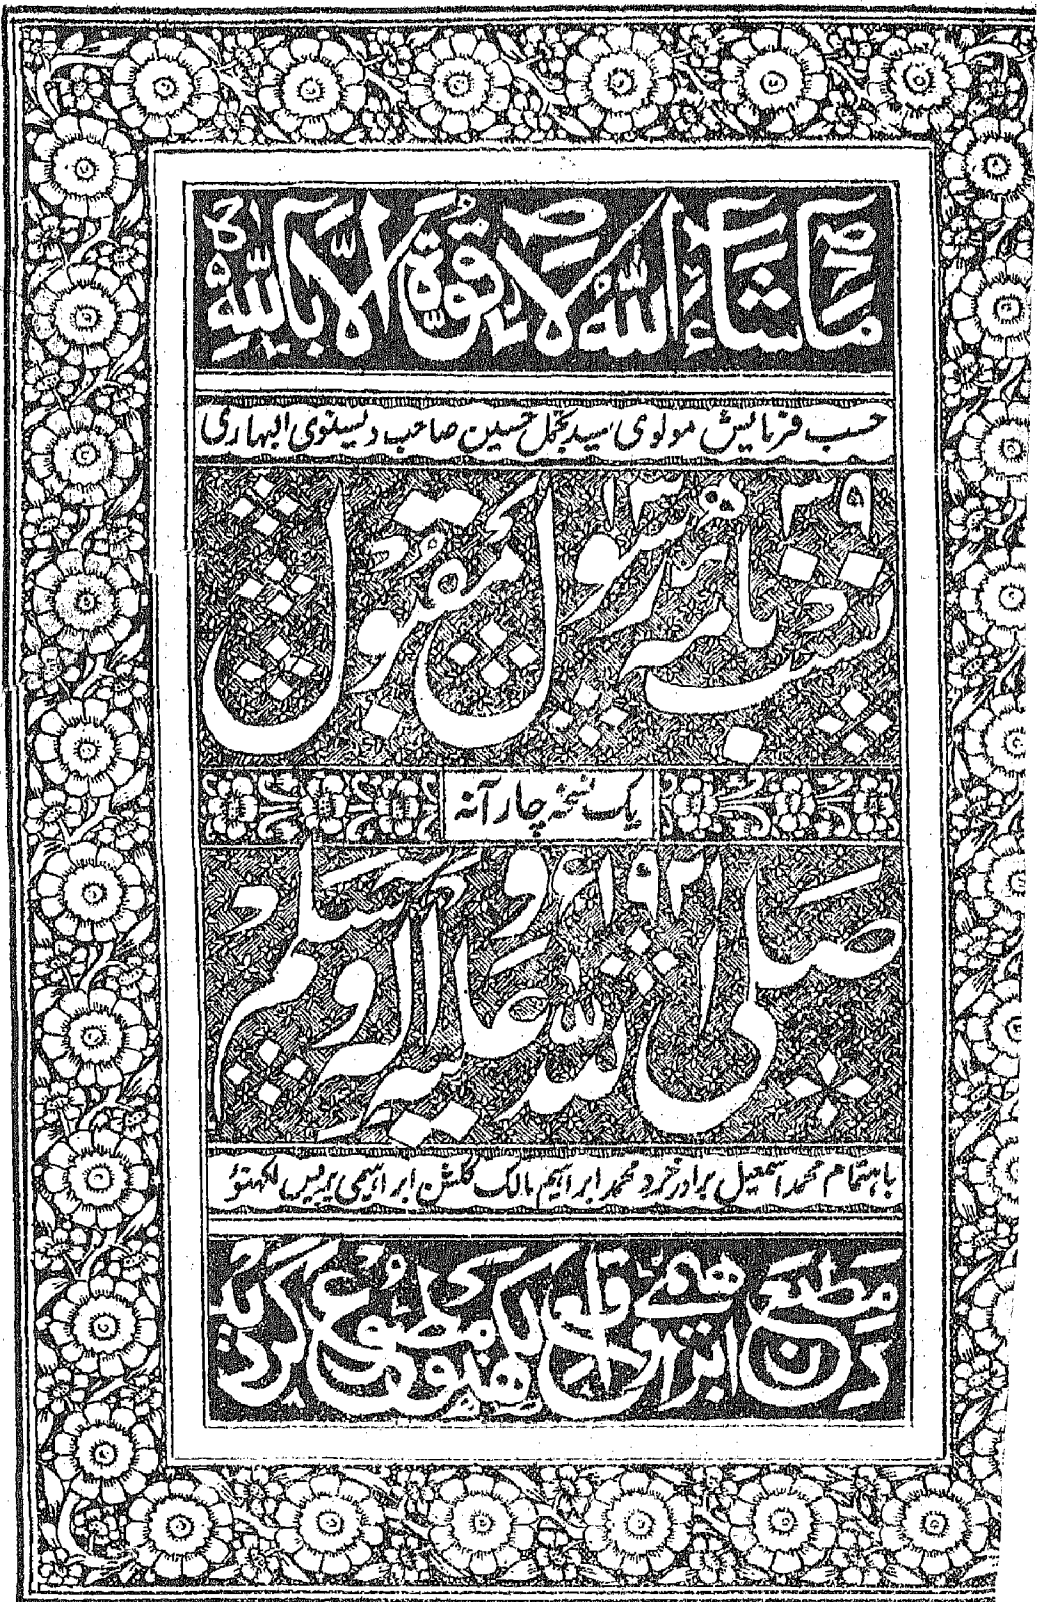 ماشاء الله لا قوة الا بالله
حسب فرمایش مولوی سید تجمل حسین صاحب دیسنوی البہاری
۱۳۳۹ھ
نسب نامہ رسول مقبول
یک نسخہ چار آنہ
۱۹۲۱ع
صلی اللہ علیہ وآلہ وسلم
باہتمام محمد اسمعیل برادر خرد محمد ابراہیم مالک گلشن ابراہیمی پریس لکھنؤ
در مطبع ابراہیمی واقع لکھنؤ مطبوع گردید